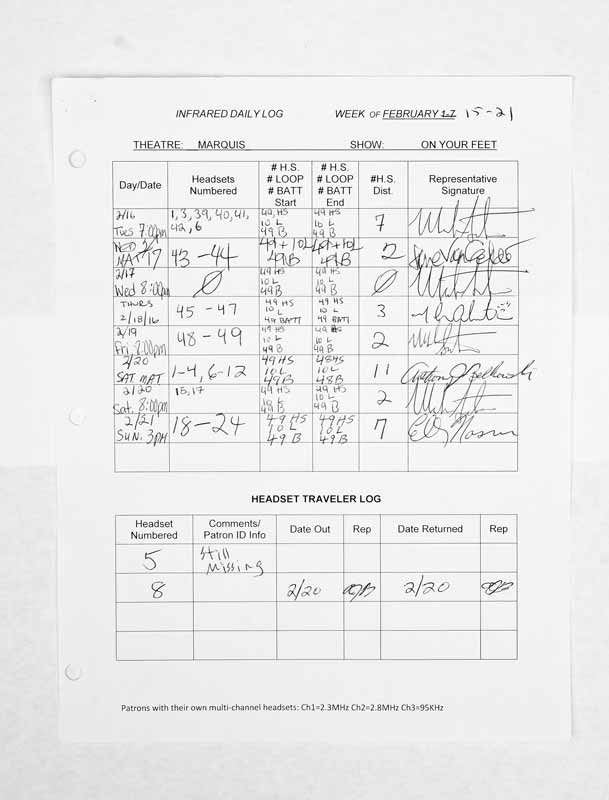 INFRARED DAILY LOG WEEK OF FEBRUARY 1-7 15-21
THEATRE: MARQUIS SHOW: ON YOUR FEET
Day/Date Headsets Numbered # H.S. # LOOP # BATT Start # H.S. # LOOP # BATT End #H.S. Dist. Representative Signature
2/16 Tues 7:00pm 1, 3, 39, 40, 41, 42, 6 49 HS 10 L 49 B 49 HS 10 L 49 B 7
WED MAT 2/17 43-44 49+10L 49B 49+10L 49B 2
2/17 Wed 8:00pm Ø 49 HS 10 L 49 B 49 HS 10 L 49 B Ø
THURS 2/18/16 45-47 49 HS 10 L 49 BATT 49 HS 10 L 49 BATT 3
2/19 Fri 8:00pm 48-49 49 HS 10 L 49 B 49 HS 10 L 49 B 2
2/20 SAT MAT 1-4, 6-12 49HS 10L 49B 48HS 10L 48B 11
2/20 Sat. 8:00pm 15, 17 49 HS 10 L 49 B 49 HS 10 L 49 B 2
2/21 SUN. 3PM 18-24 49 HS 10 L 49 B 49 HS 10 L 49 B 7
HEADSET TRAVELER LOG
Headset Numbered Comments/ Patron ID Info Date Out Rep Date Returned Rep
5 Still Missing
8 2/20 2/20
Patrons with their own multi-channel headsets: Ch1=2.3MHz Ch2=2.8MHz Ch3=95KHz